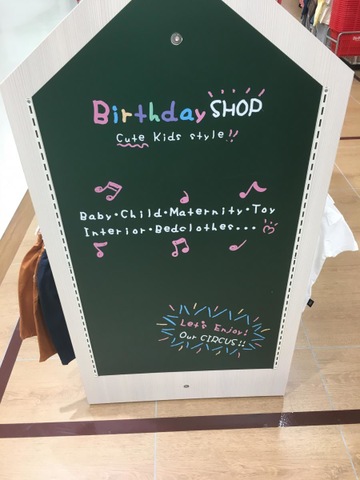 Birthday SHOP
Cute Kids style!!
Baby・Child・Maternity・Toy
Interior・Bedclothes...
Let's Enjoy!
Our CIRCUS!!